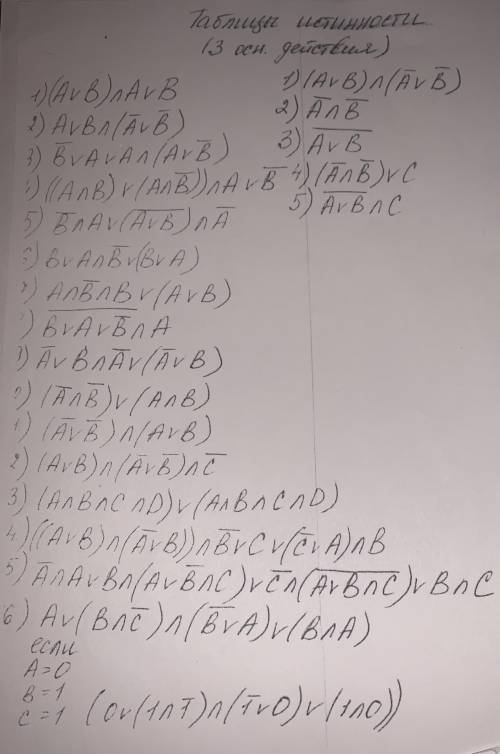 Таблицы истинности
(3 осн. действия)
1) (A∨B)∧A∨B
2) A∨B∧(A̅∨B̅)
3) B̅∨A∨A∧(A∨B̅)
4) ((A∧B)∨(A∧B̅))∧A∨B̅
5) B̅∧A∨(A̅∨̅B̅)∧A̅
6) B∨A∧B̅∨(B∨A)
A∧B̅∧B∨(A∨B)
) B̅∨̅A̅∨̅B̅∧A
) A̅∨B∧A̅∨(A̅∨B)
) (A̅∧B̅)∨(A∧B)
1) (A̅∨B̅)∧(A∨B)
2) (A∨B)∧(A̅∨B̅)∧C̅
3) (A∧B∧C∧D)∨(A∧B∧C∧D)
4) ((A∨B)∧(A̅∨B))∧B̅∨C∨(C̅∨A)∧B
5) A̅∧A∨B∧(A∨B̅∧C)∨C̅∧(A̅∨̅B̅∧̅C̅)∨B∧C
6) A∨(B∧C̅)∧(B̅∨A)∨(B∧A)
если
A=0
B=1
C=1 (0∨(1∧1̅)∧(1̅∨0)∨(1∧0))
1) (A∨B)∧(A̅∨B̅)
2) A̅∧B̅
3) A̅∨̅B̅
4) (A̅∧B̅)∨C
5) A̅∨̅B̅∧C